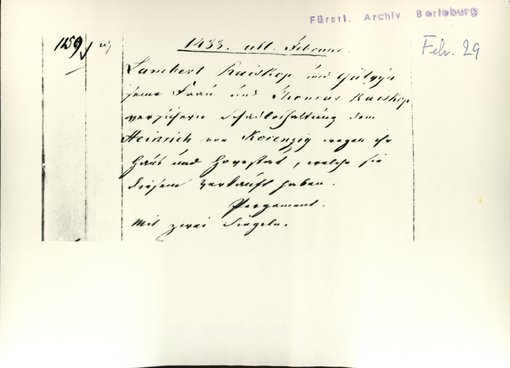 Fürstl. Archiv Berleburg
Febr. 29
1259
1433. ult. Februar.
Lambert Kuiskop und
seine Frau und Thomas Kuiskop
versichern Schadloshaltung dem
Heinrich von Korenzig wegen ihr
Haus und Hovestat, welche sie
diesem verkauft haben.
Pergament.
Mit zwei Siegeln.